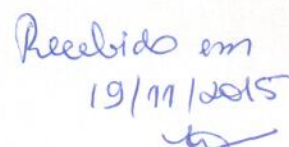 Recebido em
19/11/2015